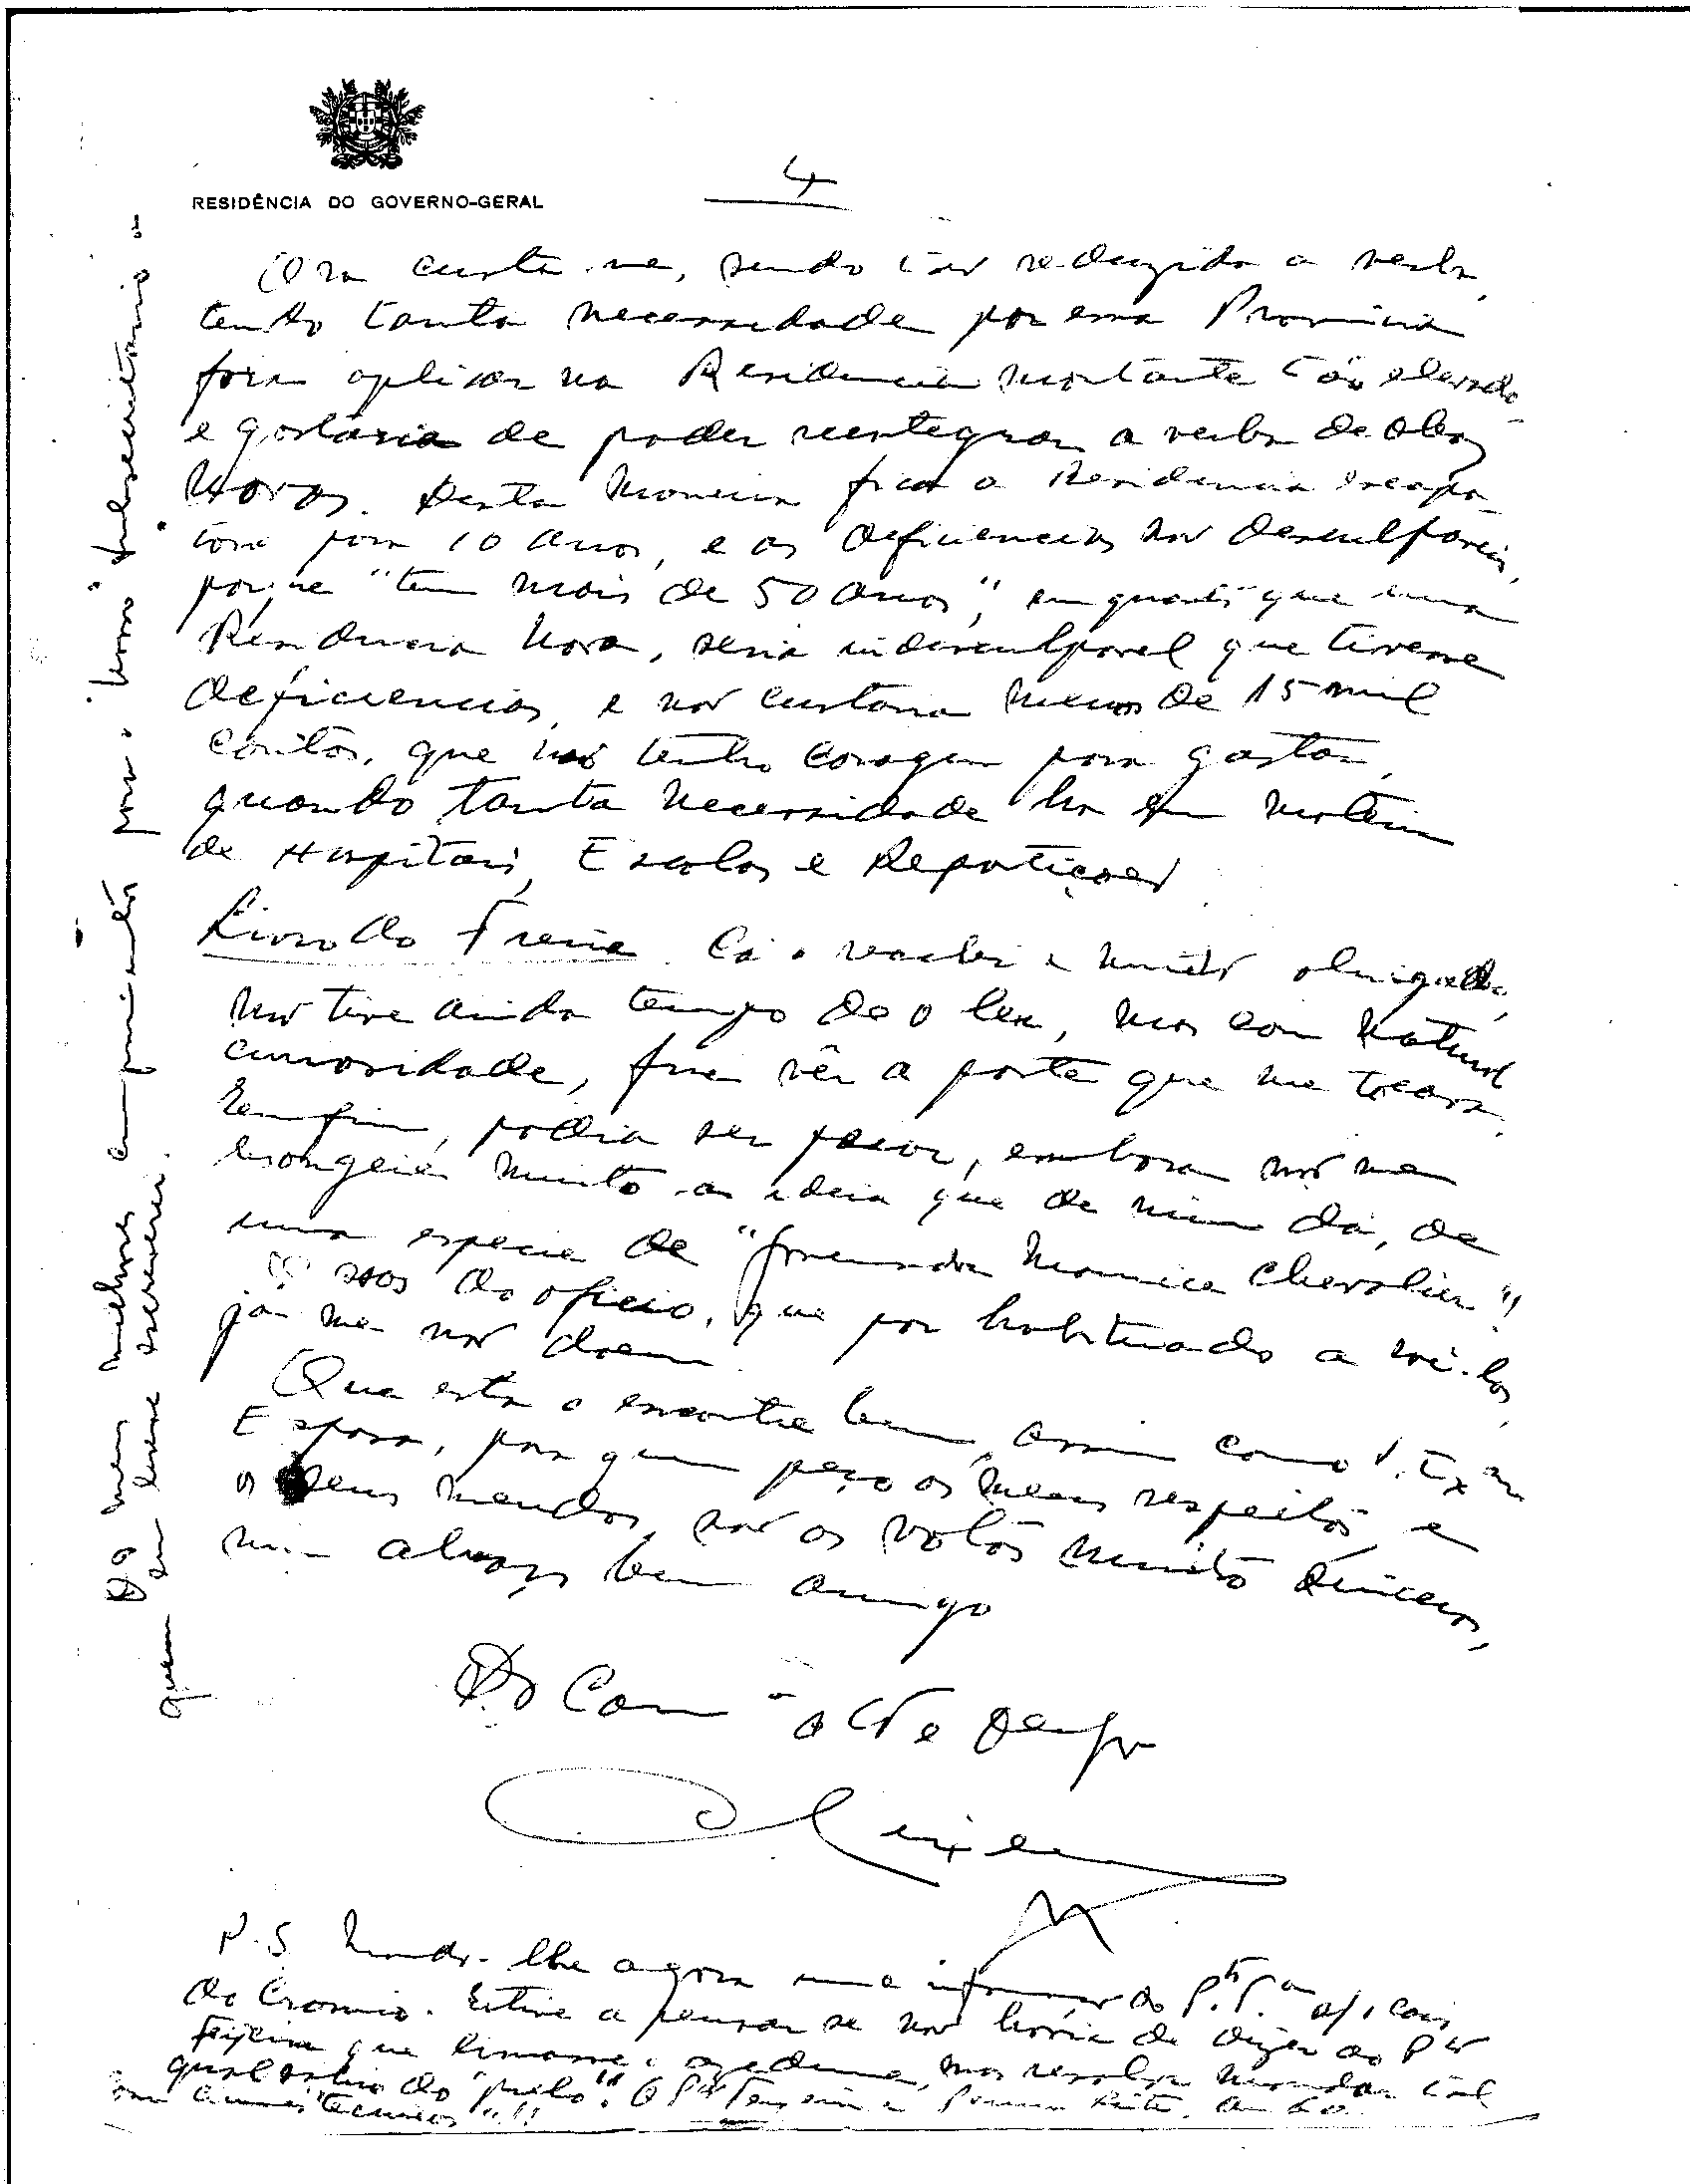 RESIDÊNCIA DO GOVERNO-GERAL
4
Ora custa-me, sendo tão reduzida a verba,
tendo tanta necessidade por essa Provincia
fora aplicar na Residencia montante tão elevado
e gostaria de poder reintegrar a verba de Obras
Novas. Desta maneira fica a Residencia escapa-
toria para 10 anos, e as deficiencias são desculpaveis,
porque "tem mais de 50 anos", enquanto que uma
Residencia Nova, seria indesculpavel que tivesse
deficiencias, e não custaria menos de 15 mil
contos, que não tenho coragem para gastar,
quando tanta necessidade ha em materia
de Hospitais, Escolas e Repartições
Livro do Freire. Cá o recebi e muito obrigado,
não tive ainda tempo de o ler, mas com natural
curiosidade, fui vêr a parte que me tocava.
Enfim, podia ser peor, embora não me
lisongeie muito a ideia que de mim dá, de
uma especie de "Maurice Chevalier"!
São do oficio, que por habituado a
já me não doem.
Que esta o encontre bem, assim como V. Exma
Esposa, para quem peço os meus respeitos, e
os seus mandos, são os votos muito sinceros,
abraço bem amigo
Do Cam
P.S. Mando-lhe agora uma
do Cromio. Estive a pensar se não havia de dizer ao
Teixeira que limasse mas resolvi mandar tal
qual do O Teixeira
tecnicos"!!
Os meus melhores cumprimentos para o "subsecretario"
quem em breve escreverei.